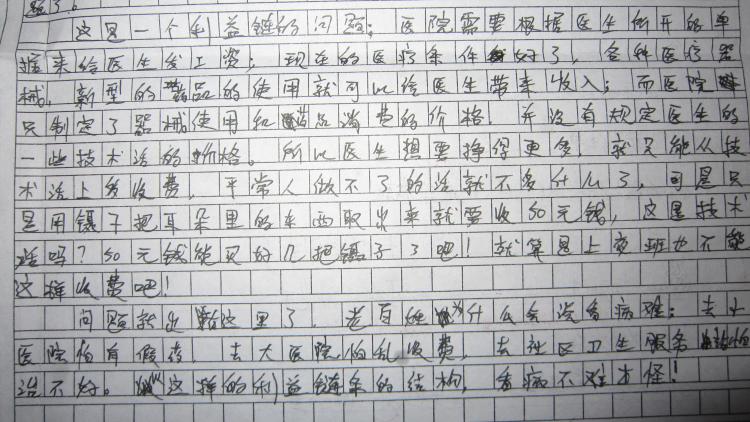 题了。
这是一个利益链的问题；医院需要根据医生所开的单
据来给医生发工资；现在的医疗条件好了，各种医疗器
械，新型的药品的使用就可以给医生带来收入；而医院
只制定了器械使用和药品消费的价格，并没有规定医生的
一些技术活的价格。所以医生想要挣得更多，就只能从技
术活上多收费，平常人做不了的活就不多什么了，可是只
是用镊子把耳朵里的东西取出来就要收50元钱，这是技术
活吗？50元钱能买好几把镊子了吧！就算是上夜班也不能
这样收费吧！
问题就出在这里了，老百姓为什么会说看病难；去小
医院怕有假药，去大医院怕乱收费，去社区卫生服务站怕
治不好。这样的利益链条的结构，看病不难才怪！